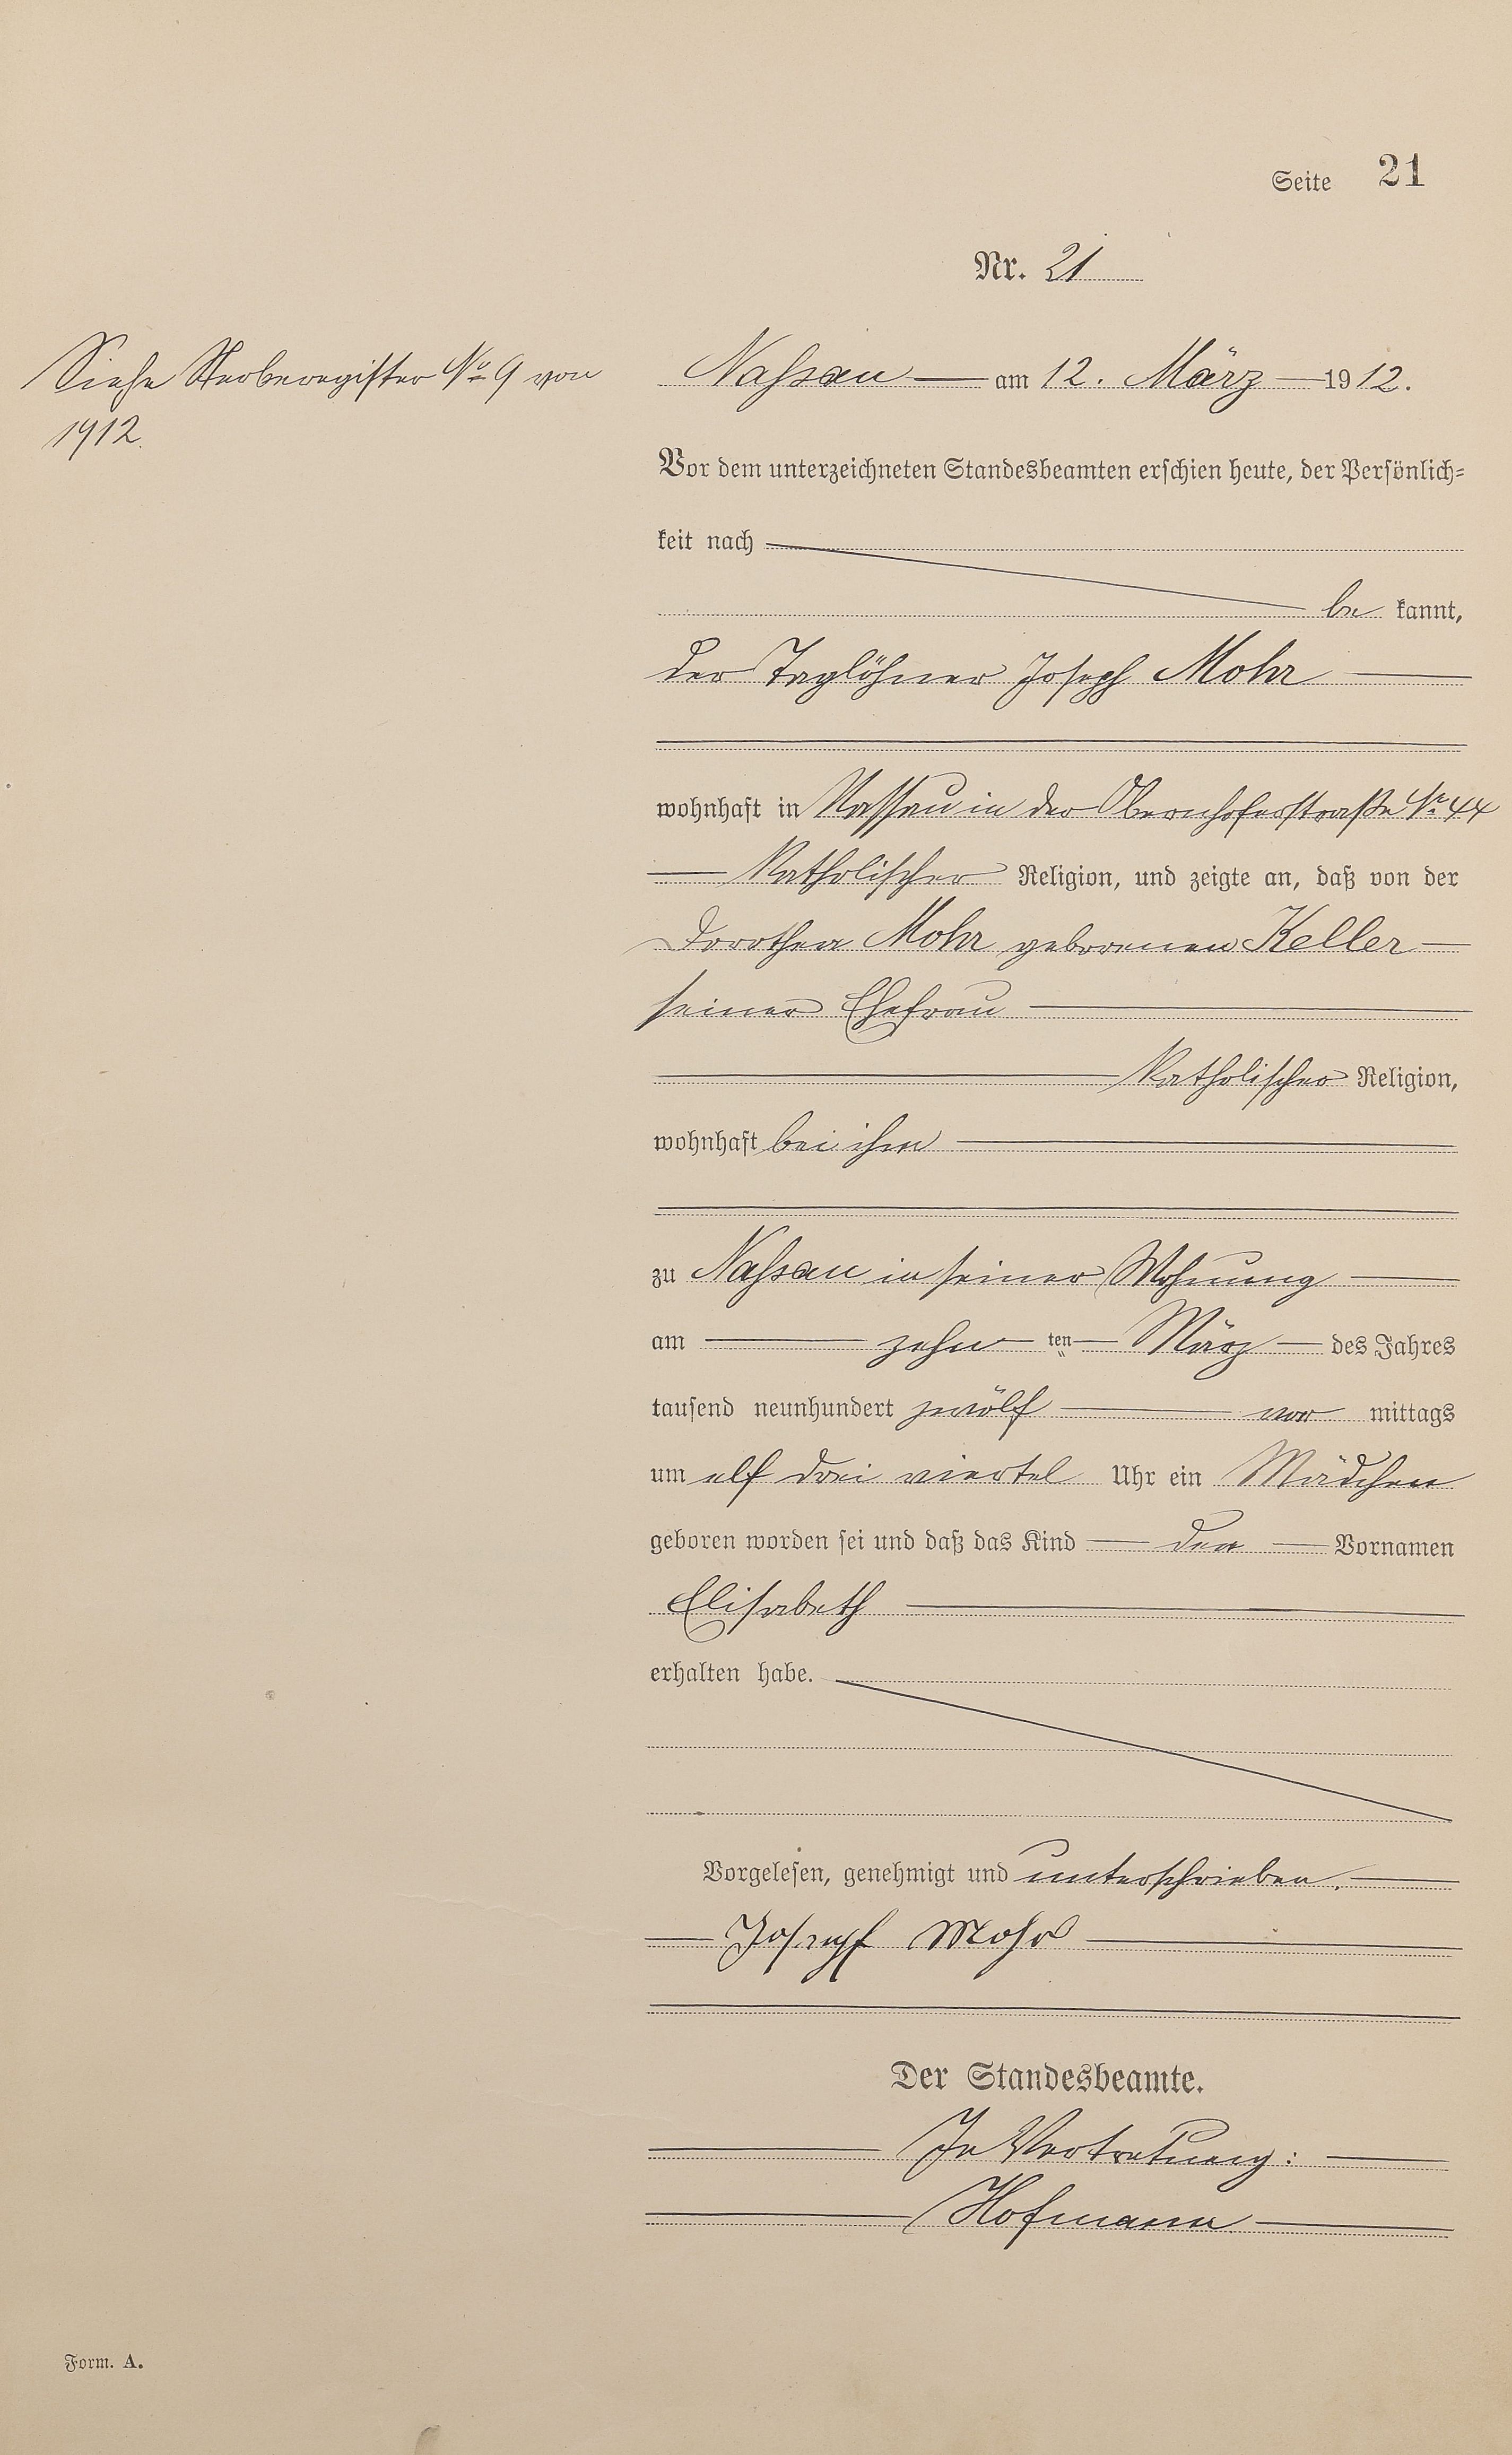 Seite 21
Nr. 21
Siehe Sterberegister No 9 von
1912.
Nassau am 12. März 1912.
Vor dem unterzeichneten Standesbeamten erschien heute, der Persönlich-
keit nach
be kannt,
der Taglöhner Joseph Mohr
wohnhaft in Nassau in der Obernhoferstraße Nr. 44
Katholischer Religion, und zeigte an, daß von der
Dorothea Mohr geborenen Keller
seiner Ehefrau
Katholischer Religion,
wohnhaft bei ihm
zu Nassau in seiner Wohnung
am zehn ten März des Jahres
tausend neunhundert zwölf vor mittags
um elf drei viertel Uhr ein Mädchen
geboren worden sei und daß das Kind den Vornamen
Elisabeth
erhalten habe.
Vorgelesen, genehmigt und unterschrieben.
Josepf Mohr
Der Standesbeamte.
In Vertretung:
Hofmann
Form. A.